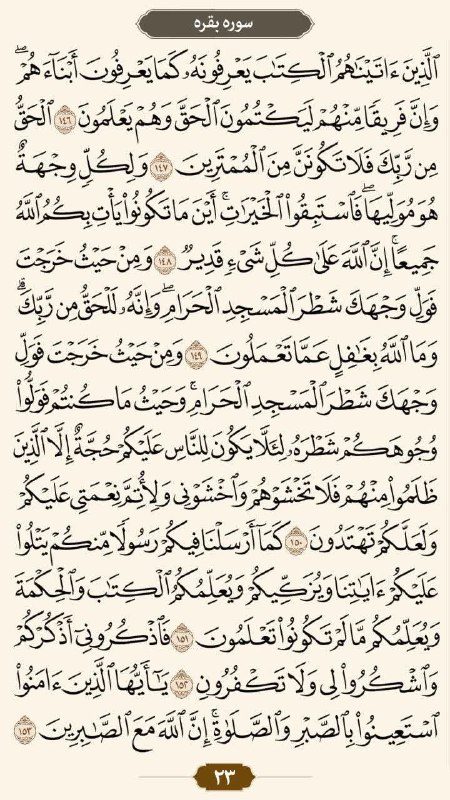 سوره بقره
الَّذِينَ ءَاتَيْنَاهُمُ الْكِتَابَ يَعْرِفُونَهُ كَمَا يَعْرِفُونَ أَبْنَاءَهُمْ ۖ
وَإِنَّ فَرِيقًا مِّنْهُمْ لَيَكْتُمُونَ الْحَقَّ وَهُمْ يَعْلَمُونَ ١٤٦ الْحَقُّ
مِن رَّبِّكَ فَلَا تَكُونَنَّ مِنَ الْمُمْتَرِينَ ١٤٧ وَلِكُلٍّ وِجْهَةٌ
هُوَ مُوَلِّيهَا ۖ فَاسْتَبِقُوا الْخَيْرَاتِ ۚ أَيْنَ مَا تَكُونُوا يَأْتِ بِكُمُ اللَّهُ
جَمِيعًا ۚ إِنَّ اللَّهَ عَلَىٰ كُلِّ شَيْءٍ قَدِيرٌ ١٤٨ وَمِنْ حَيْثُ خَرَجْتَ
فَوَلِّ وَجْهَكَ شَطْرَ الْمَسْجِدِ الْحَرَامِ ۖ وَإِنَّهُ لَلْحَقُّ مِن رَّبِّكَ ۗ
وَمَا اللَّهُ بِغَافِلٍ عَمَّا تَعْمَلُونَ ١٤٩ وَمِنْ حَيْثُ خَرَجْتَ فَوَلِّ
وَجْهَكَ شَطْرَ الْمَسْجِدِ الْحَرَامِ ۚ وَحَيْثُ مَا كُنتُمْ فَوَلُّوا
وُجُوهَكُمْ شَطْرَهُ لِئَلَّا يَكُونَ لِلنَّاسِ عَلَيْكُمْ حُجَّةٌ إِلَّا الَّذِينَ
ظَلَمُوا مِنْهُمْ فَلَا تَخْشَوْهُمْ وَاخْشَوْنِي وَلِأُتِمَّ نِعْمَتِي عَلَيْكُمْ
وَلَعَلَّكُمْ تَهْتَدُونَ ١٥٠ كَمَا أَرْسَلْنَا فِيكُمْ رَسُولًا مِّنكُمْ يَتْلُوا
عَلَيْكُمْ ءَايَاتِنَا وَيُزَكِّيكُمْ وَيُعَلِّمُكُمُ الْكِتَابَ وَالْحِكْمَةَ
وَيُعَلِّمُكُم مَّا لَمْ تَكُونُوا تَعْلَمُونَ ١٥١ فَاذْكُرُونِي أَذْكُرْكُمْ
وَاشْكُرُوا لِي وَلَا تَكْفُرُونِ ١٥٢ يَا أَيُّهَا الَّذِينَ ءَامَنُوا
اسْتَعِينُوا بِالصَّبْرِ وَالصَّلَاةِ ۚ إِنَّ اللَّهَ مَعَ الصَّابِرِينَ ١٥٣
٢٣